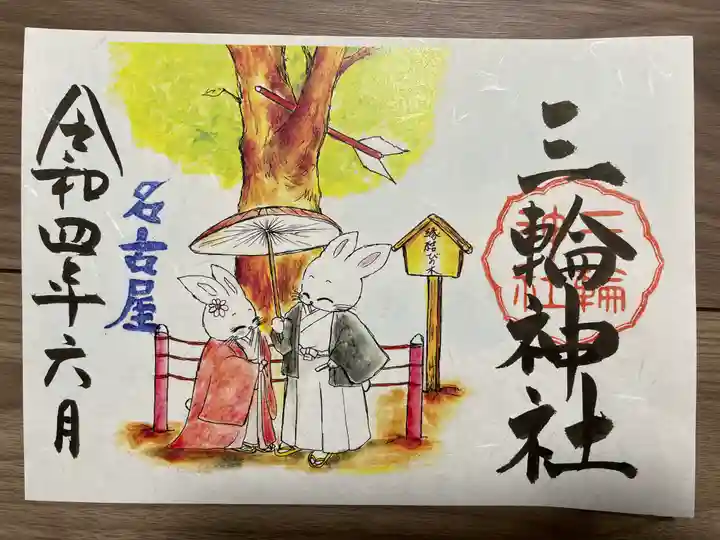 三輪神社
三輪
神社
縁結びの木
名古屋
令和四年六月